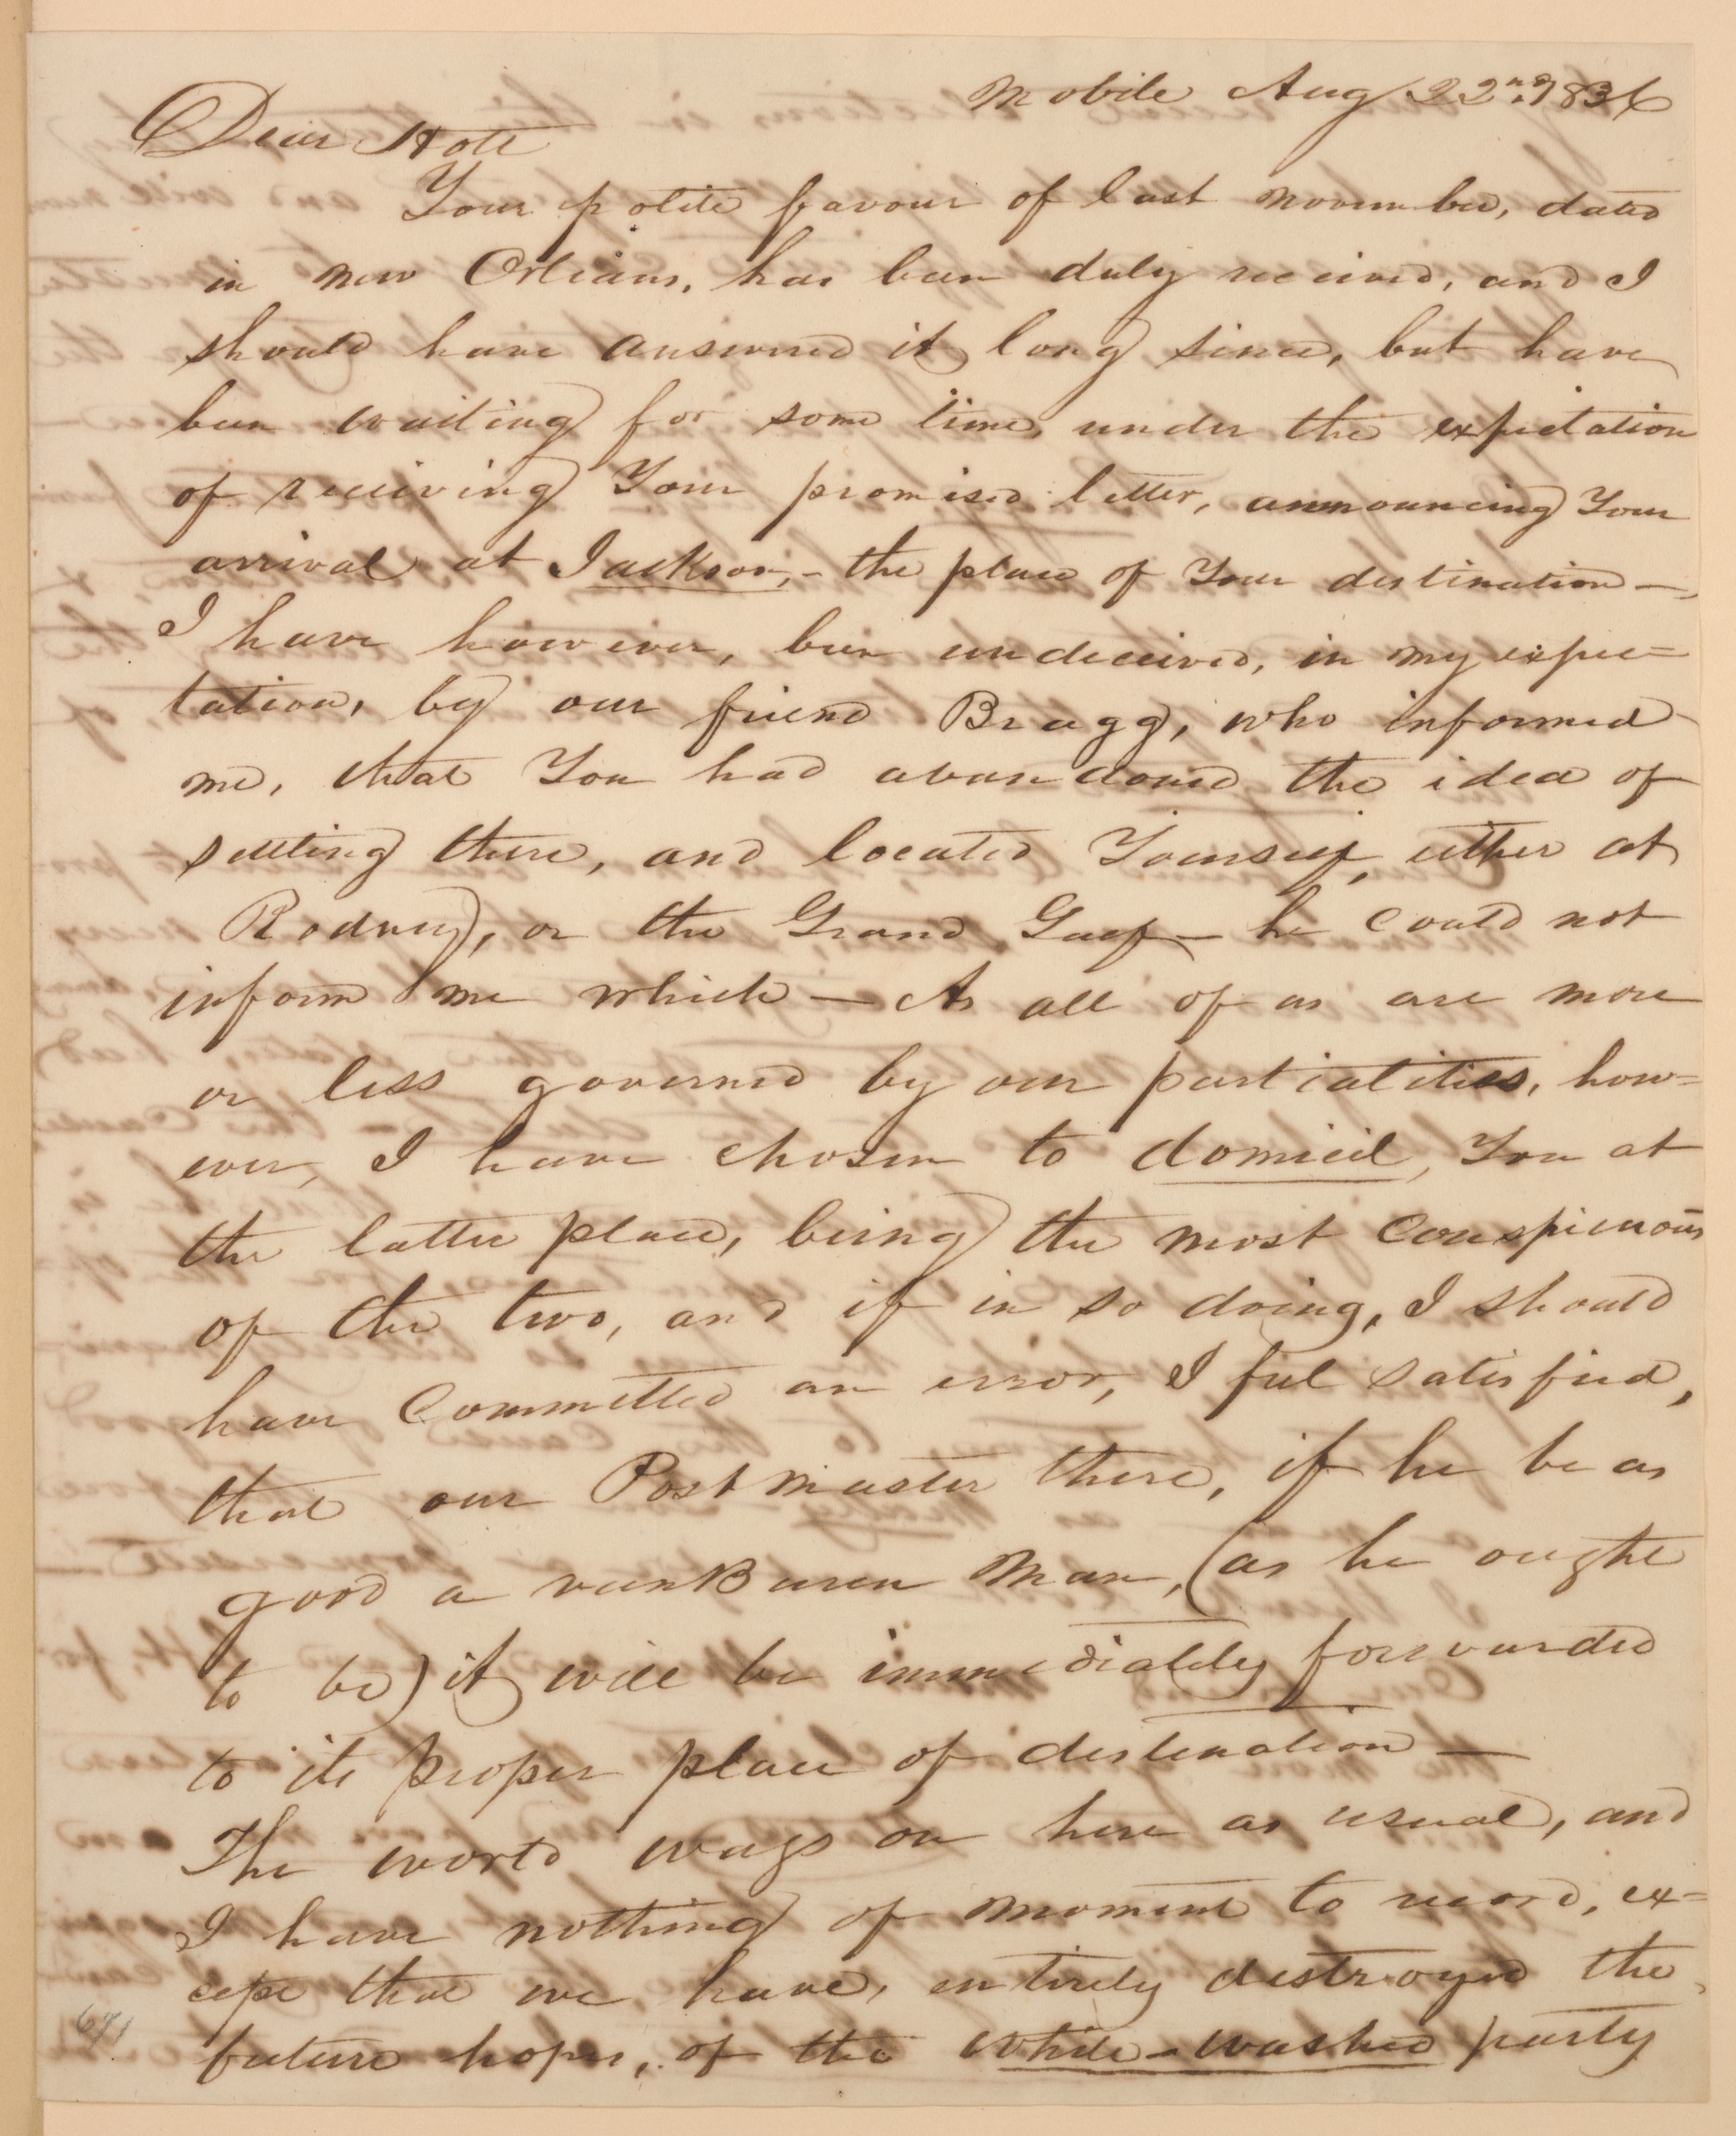 Mobile Aug 22nd 1836
Dear Holt
Your polite favour of last november, dated
in new Orleans, has been duly received, and I
should have answered it long since, but have
been waiting for some time, under the expectation
of receiving Your promised letter, announcing Your
arrival at Jackson,- the place of Your destination —
I have however, been undeceived, in my expec=
tation, by our friend Bragg, who informed
me, that You had abandoned the idea of
settling there, and located Yourself, either at
Rodney, or the Grand Gulf — he could not
inform me which — As all of us are more
or less governed by our partialities, how=
ever, I have chosen to domicil, You at
the latter place, being the most Conspicuous
of the two, and if in so doing, I should
have Committed an error, I feel satisfied,
that our Postmaster there, if he be as
good a van Buren Man, (as he ought
to be) it will be immediately forwarded
to its proper place of destination —
The world wags on here as usual, and
I have nothing of moment to record, ex=
cept that we have, entirely destroyed the
future hopes, of the white-washed party
671